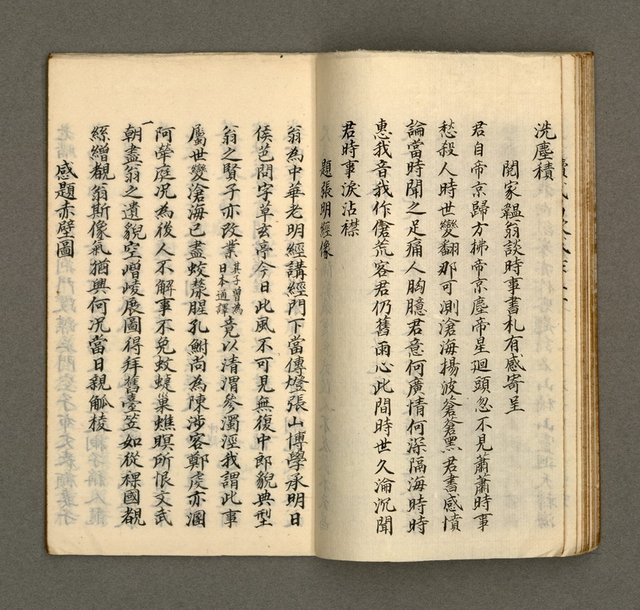 洗塵積
閱家韞翁談時事書札有感寄呈
君自帝京歸方拂帝京塵帝星廻頭忽不見蕭蕭時事
愁殺人時世變翻那可測滄海揚波蒼蒼黑君書感憤
論當時聞之足痛人胸臆君意何廣情何深隔海時時
惠我音我作傖荒客君仍舊雨心此間時世久淪沉聞
君時事淚沾襟
題張明經像
翁為中華老明經講經門下當傳燈張山博學承明日
侯芭問字草玄亭今日此風不可見無復中郎貌典型
翁之賢子亦改業其子曾為日本通譯竟以清渭參濁涇我謂此事
屬世變滄海已盡蛟鼉腥孔鮒尚為陳涉容鄭虔亦溷
阿犖庭況為後人不解事不免蚊蜨巢蟭瞑所恨文武
一朝盡翁之遺貌空嶒崚展圖得拜舊臺笠如從裸國覩
絲繒覩翁斯像氣猶興何況當日親觚稜
感題赤壁圖